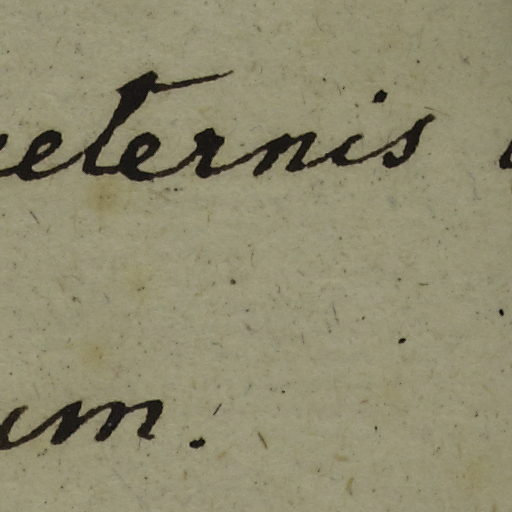 aeternis
um.